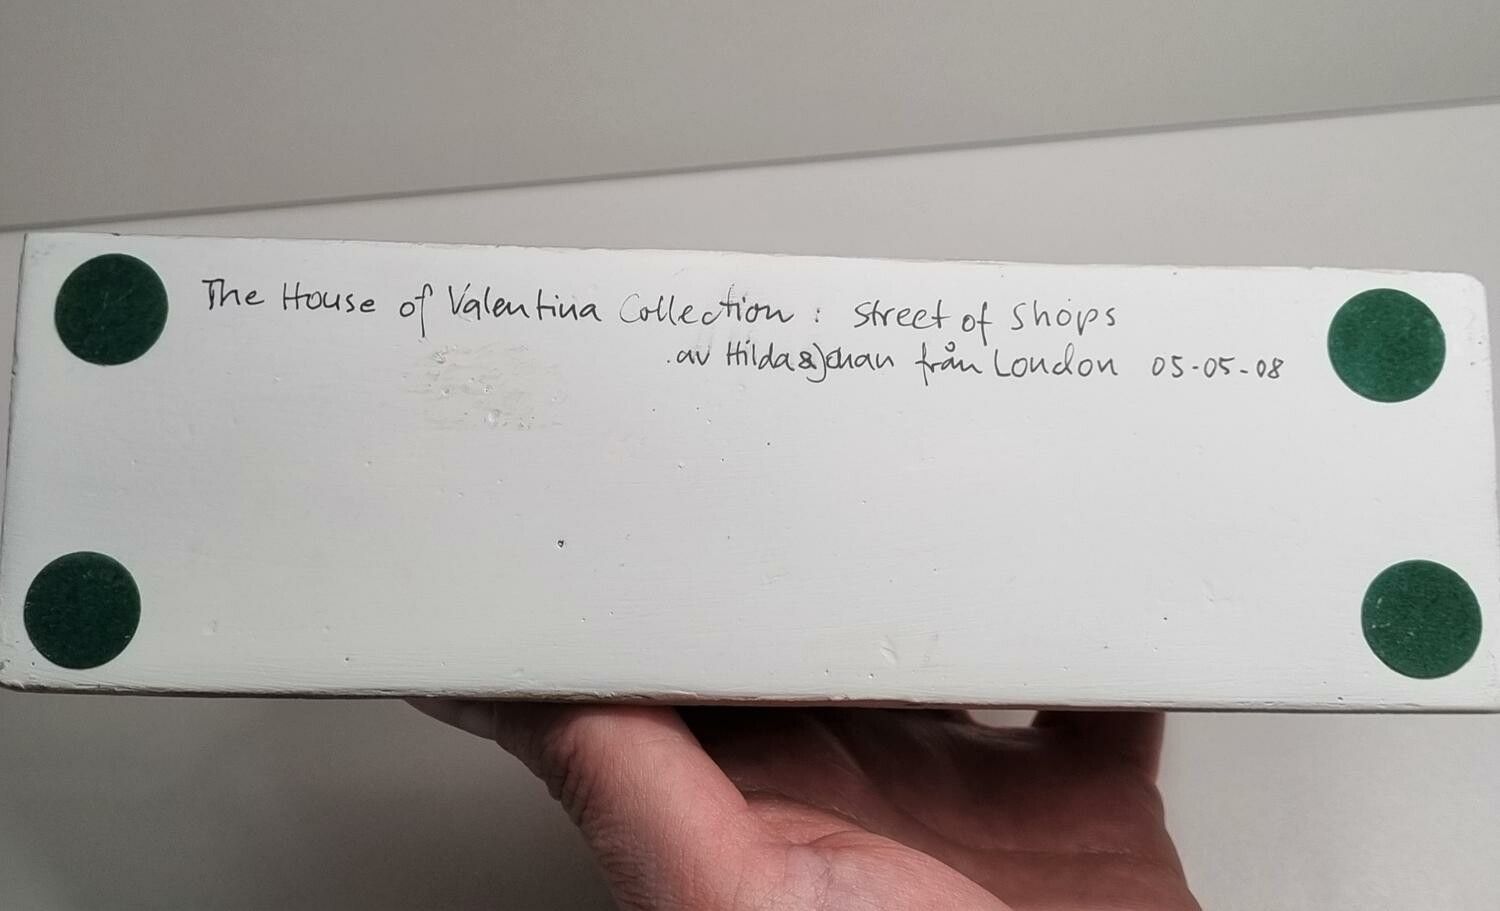 The House of Valentina Collection : Street of Shops
av Hilda & Johan från London 05-05-08